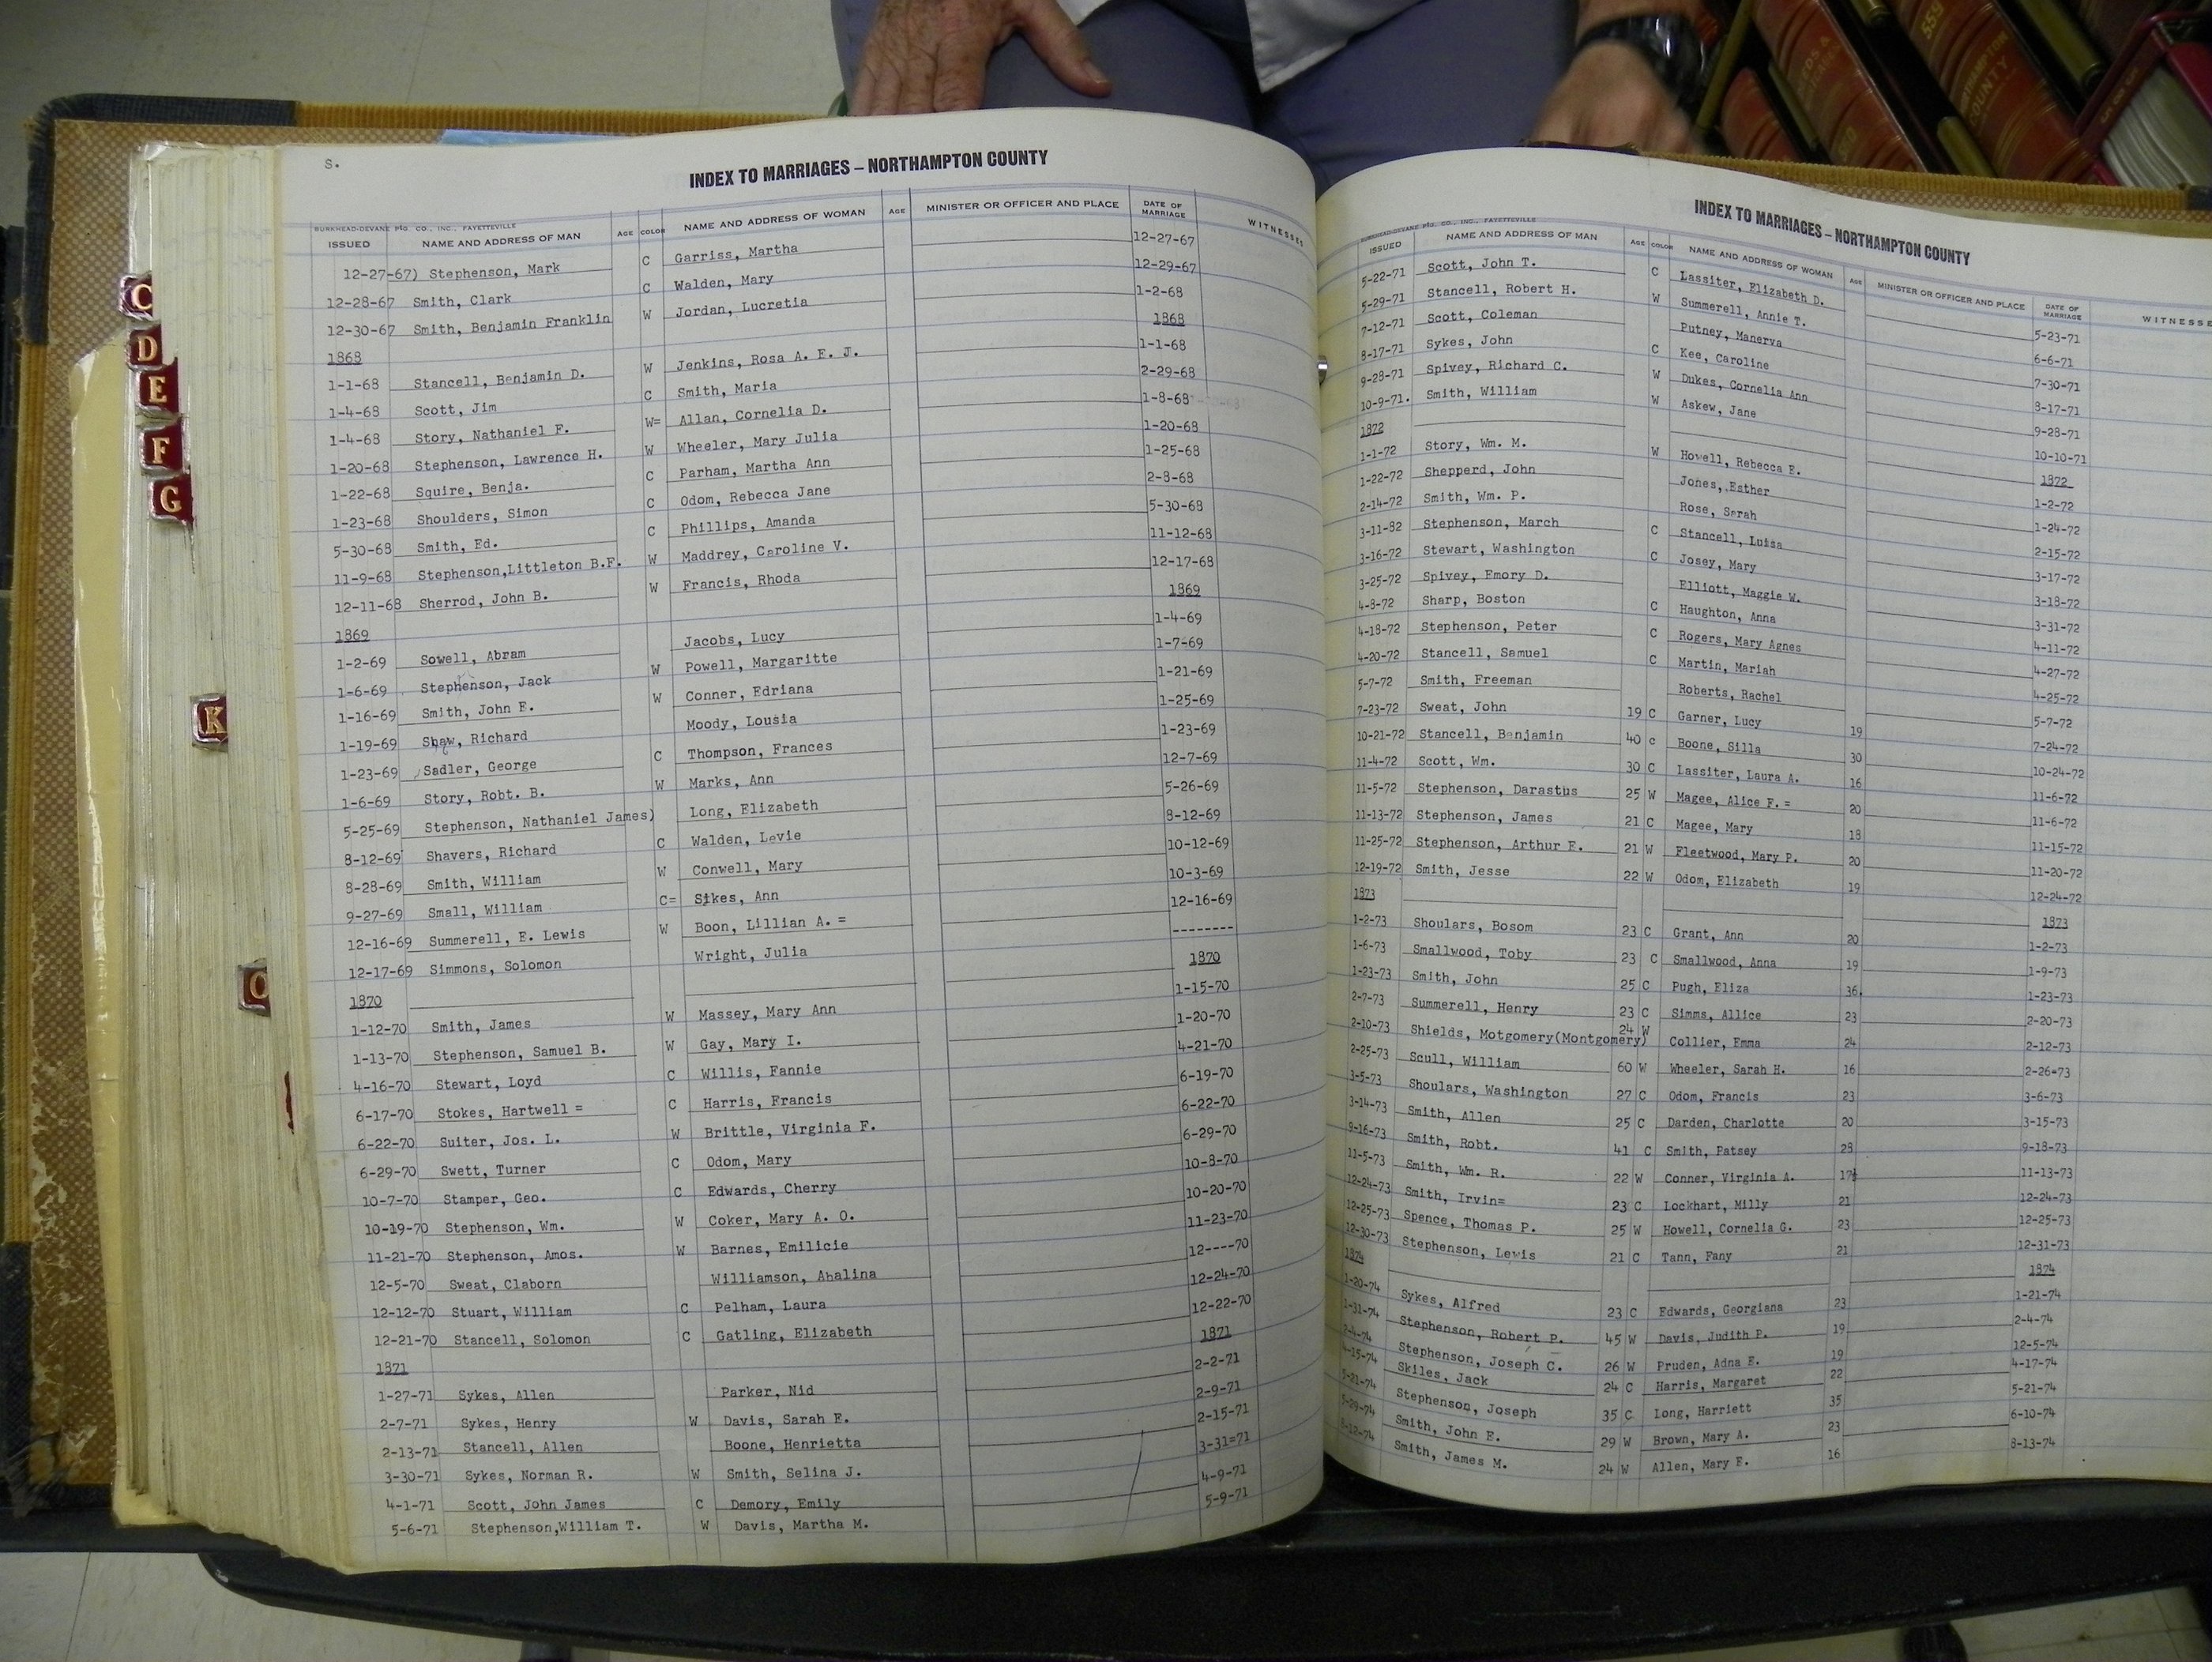 S.
INDEX TO MARRIAGES – NORTHAMPTON COUNTY
BURKHEAD-DEVANE PTG. CO., INC., FAYETTEVILLE
ISSUED NAME AND ADDRESS OF MAN AGE COLOR NAME AND ADDRESS OF WOMAN AGE MINISTER OR OFFICER AND PLACE DATE OF MARRIAGE WITNESSES
12-27-67) Stephenson, Mark C Garriss, Martha 12-27-67
12-28-67 Smith, Clark C Walden, Mary 12-29-67
12-30-67 Smith, Benjamin Franklin W Jordan, Lucretia 1-2-68
1868 1868
1-1-68 Stancell, Benjamin D. W Jenkins, Rosa A. E. J. 1-1-68
1-4-68 Scott, Jim C Smith, Maria 2-29-68
1-4-68 Story, Nathaniel F. W= Allan, Cornelia D. 1-8-68
1-20-68 Stephenson, Lawrence H. W Wheeler, Mary Julia 1-20-68
1-22-68 Squire, Benja. C Parham, Martha Ann 1-25-68
1-23-68 Shoulders, Simon C Odom, Rebecca Jane 2-8-68
5-30-68 Smith, Ed. C Phillips, Amanda 5-30-68
11-9-68 Stephenson,Littleton B.F. W Maddrey, Caroline V. 11-12-68
12-11-68 Sherrod, John B. W Francis, Rhoda 12-17-68
1869 1869
1-2-69 Sowell, Abram Jacobs, Lucy 1-4-69
1-6-69 Stephenson, Jack W Powell, Margaritte 1-7-69
1-16-69 Smith, John E. W Conner, Edriana 1-21-69
1-19-69 Shaw, Richard Moody, Lousia 1-25-69
1-23-69 Sadler, George C Thompson, Frances 1-23-69
1-6-69 Story, Robt. B. W Marks, Ann 12-7-69
5-25-69 Stephenson, Nathaniel James) Long, Elizabeth 5-26-69
8-12-69 Shavers, Richard C Walden, Levie 8-12-69
8-28-69 Smith, William W Conwell, Mary 10-12-69
9-27-69 Small, William C= Sikes, Ann 10-3-69
12-16-69 Summerell, E. Lewis W Boon, Lillian A. = 12-16-69
12-17-69 Simmons, Solomon Wright, Julia --------
1870 1870
1-12-70 Smith, James W Massey, Mary Ann 1-15-70
1-13-70 Stephenson, Samuel B. W Gay, Mary I. 1-20-70
4-16-70 Stewart, Loyd C Willis, Fannie 4-21-70
6-17-70 Stokes, Hartwell = C Harris, Francis 6-19-70
6-22-70 Suiter, Jos. L. W Brittle, Virginia F. 6-22-70
6-29-70 Swett, Turner C Odom, Mary 6-29-70
10-7-70 Stamper, Geo. C Edwards, Cherry 10-8-70
10-19-70 Stephenson, Wm. W Coker, Mary A. O. 10-20-70
11-21-70 Stephenson, Amos. W Barnes, Emilicie 11-23-70
12-5-70 Sweat, Claborn Williamson, Ahalina 12----70
12-12-70 Stuart, William C Pelham, Laura 12-24-70
12-21-70 Stancell, Solomon C Gatling, Elizabeth 12-22-70
1871 1871
1-27-71 Sykes, Allen Parker, Nid 2-2-71
2-7-71 Sykes, Henry W Davis, Sarah E. 2-9-71
2-13-71 Stancell, Allen Boone, Henrietta 2-15-71
3-30-71 Sykes, Norman R. W Smith, Selina J. 3-31=71
4-1-71 Scott, John James C Demory, Emily 4-9-71
5-6-71 Stephenson,William T. W Davis, Martha M. 5-9-71
INDEX TO MARRIAGES – NORTHAMPTON COUNTY
BURKHEAD-DEVANE PTG. CO., INC., FAYETTEVILLE
ISSUED NAME AND ADDRESS OF MAN AGE COLOR NAME AND ADDRESS OF WOMAN AGE MINISTER OR OFFICER AND PLACE DATE OF MARRIAGE WITNESSE
5-22-71 Scott, John T. C Lassiter, Elizabeth D. 5-23-71
5-29-71 Stancell, Robert H. W Summerell, Annie T. 6-6-71
7-12-71 Scott, Coleman Putney, Manerva 7-30-71
8-17-71 Sykes, John C Kee, Caroline 8-17-71
9-28-71 Spivey, Richard C. W Dukes, Cornelia Ann 9-28-71
10-9-71. Smith, William W Askew, Jane 10-10-71
1872 1872
1-1-72 Story, Wm. M. W Howell, Rebecca E. 1-2-72
1-22-72 Shepperd, John Jones, Esther 1-24-72
2-14-72 Smith, Wm. P. Rose, Sarah 2-15-72
3-11-82 Stephenson, March C Stancell, Luisa 3-17-72
3-16-72 Stewart, Washington C Josey, Mary 3-18-72
3-25-72 Spivey, Emory D. Elliott, Maggie W. 3-31-72
4-8-72 Sharp, Boston C Haughton, Anna 4-11-72
4-18-72 Stephenson, Peter C Rogers, Mary Agnes 4-27-72
4-20-72 Stancell, Samuel C Martin, Mariah 4-25-72
5-7-72 Smith, Freeman Roberts, Rachel 5-7-72
7-23-72 Sweat, John 19 C Garner, Lucy 19 7-24-72
10-21-72 Stancell, Benjamin 40 c Boone, Silla 30 10-24-72
11-4-72 Scott, Wm. 30 C Lassiter, Laura A. 16 11-6-72
11-5-72 Stephenson, Darastus 25 W Magee, Alice F. = 20 11-6-72
11-13-72 Stephenson, James 21 C Magee, Mary 18 11-15-72
11-25-72 Stephenson, Arthur E. 21 W Fleetwood, Mary P. 20 11-20-72
12-19-72 Smith, Jesse 22 W Odom, Elizabeth 19 12-24-72
1873 1873
1-2-73 Shoulars, Bosom 23 C Grant, Ann 20 1-2-73
1-6-73 Smallwood, Toby 23 C Smallwood, Anna 19 1-9-73
1-23-73 Smith, John 25 C Pugh, Eliza 36. 1-23-73
2-7-73 Summerell, Henry 23 C Simms, Allice 23 2-20-73
2-10-73 Shields, Motgomery(Montgomery) 24 W Collier, Emma 24 2-12-73
2-25-73 Scull, William 60 W Wheeler, Sarah H. 16 2-26=73
3-5-73 Shoulars, Washington 27 C Odom, Francis 23 3-6-73
3-14-73 Smith, Allen 25 C Darden, Charlotte 20 3-15-73
9-16-73 Smith, Robt. 41 C Smith, Patsey 28 9-18-73
11-5-73 Smith, Wm. R. 22 W Conner, Virginia A. 17½ 11-13-73
12-24-73 Smith, Irvin= 23 C Lockhart, Milly 21 12-24-73
12-25-73 Spence, Thomas P. 25 W Howell, Cornelia G. 23 12-25-73
12-30-73 Stephenson, Lewis 21 C Tann, Fany 21 12-31-73
1874 1874
1-20-74 Sykes, Alfred 23 C Edwards, Georgiana 23 1-21-74
1-31-74 Stephenson, Robert P. 45 W Davis, Judith P. 19 2-4-74
2-4-74 Stephenson, Joseph C. 26 W Pruden, Adna E. 19 12-5-74
4-15-74 Skiles, Jack 24 C Harris, Margaret 22 4-17-74
5-21-74 Stephenson, Joseph 35 C Long, Harriett 35 5-21-74
5-29-74 Smith, John E. 29 W Brown, Mary A. 23 6-10-74
8-12-74 Smith, James M. 24 W Allen, Mary F. 16 8-13-74
C
D
E
F
G
K
O
559
NORTHAMPTON
COUNTY